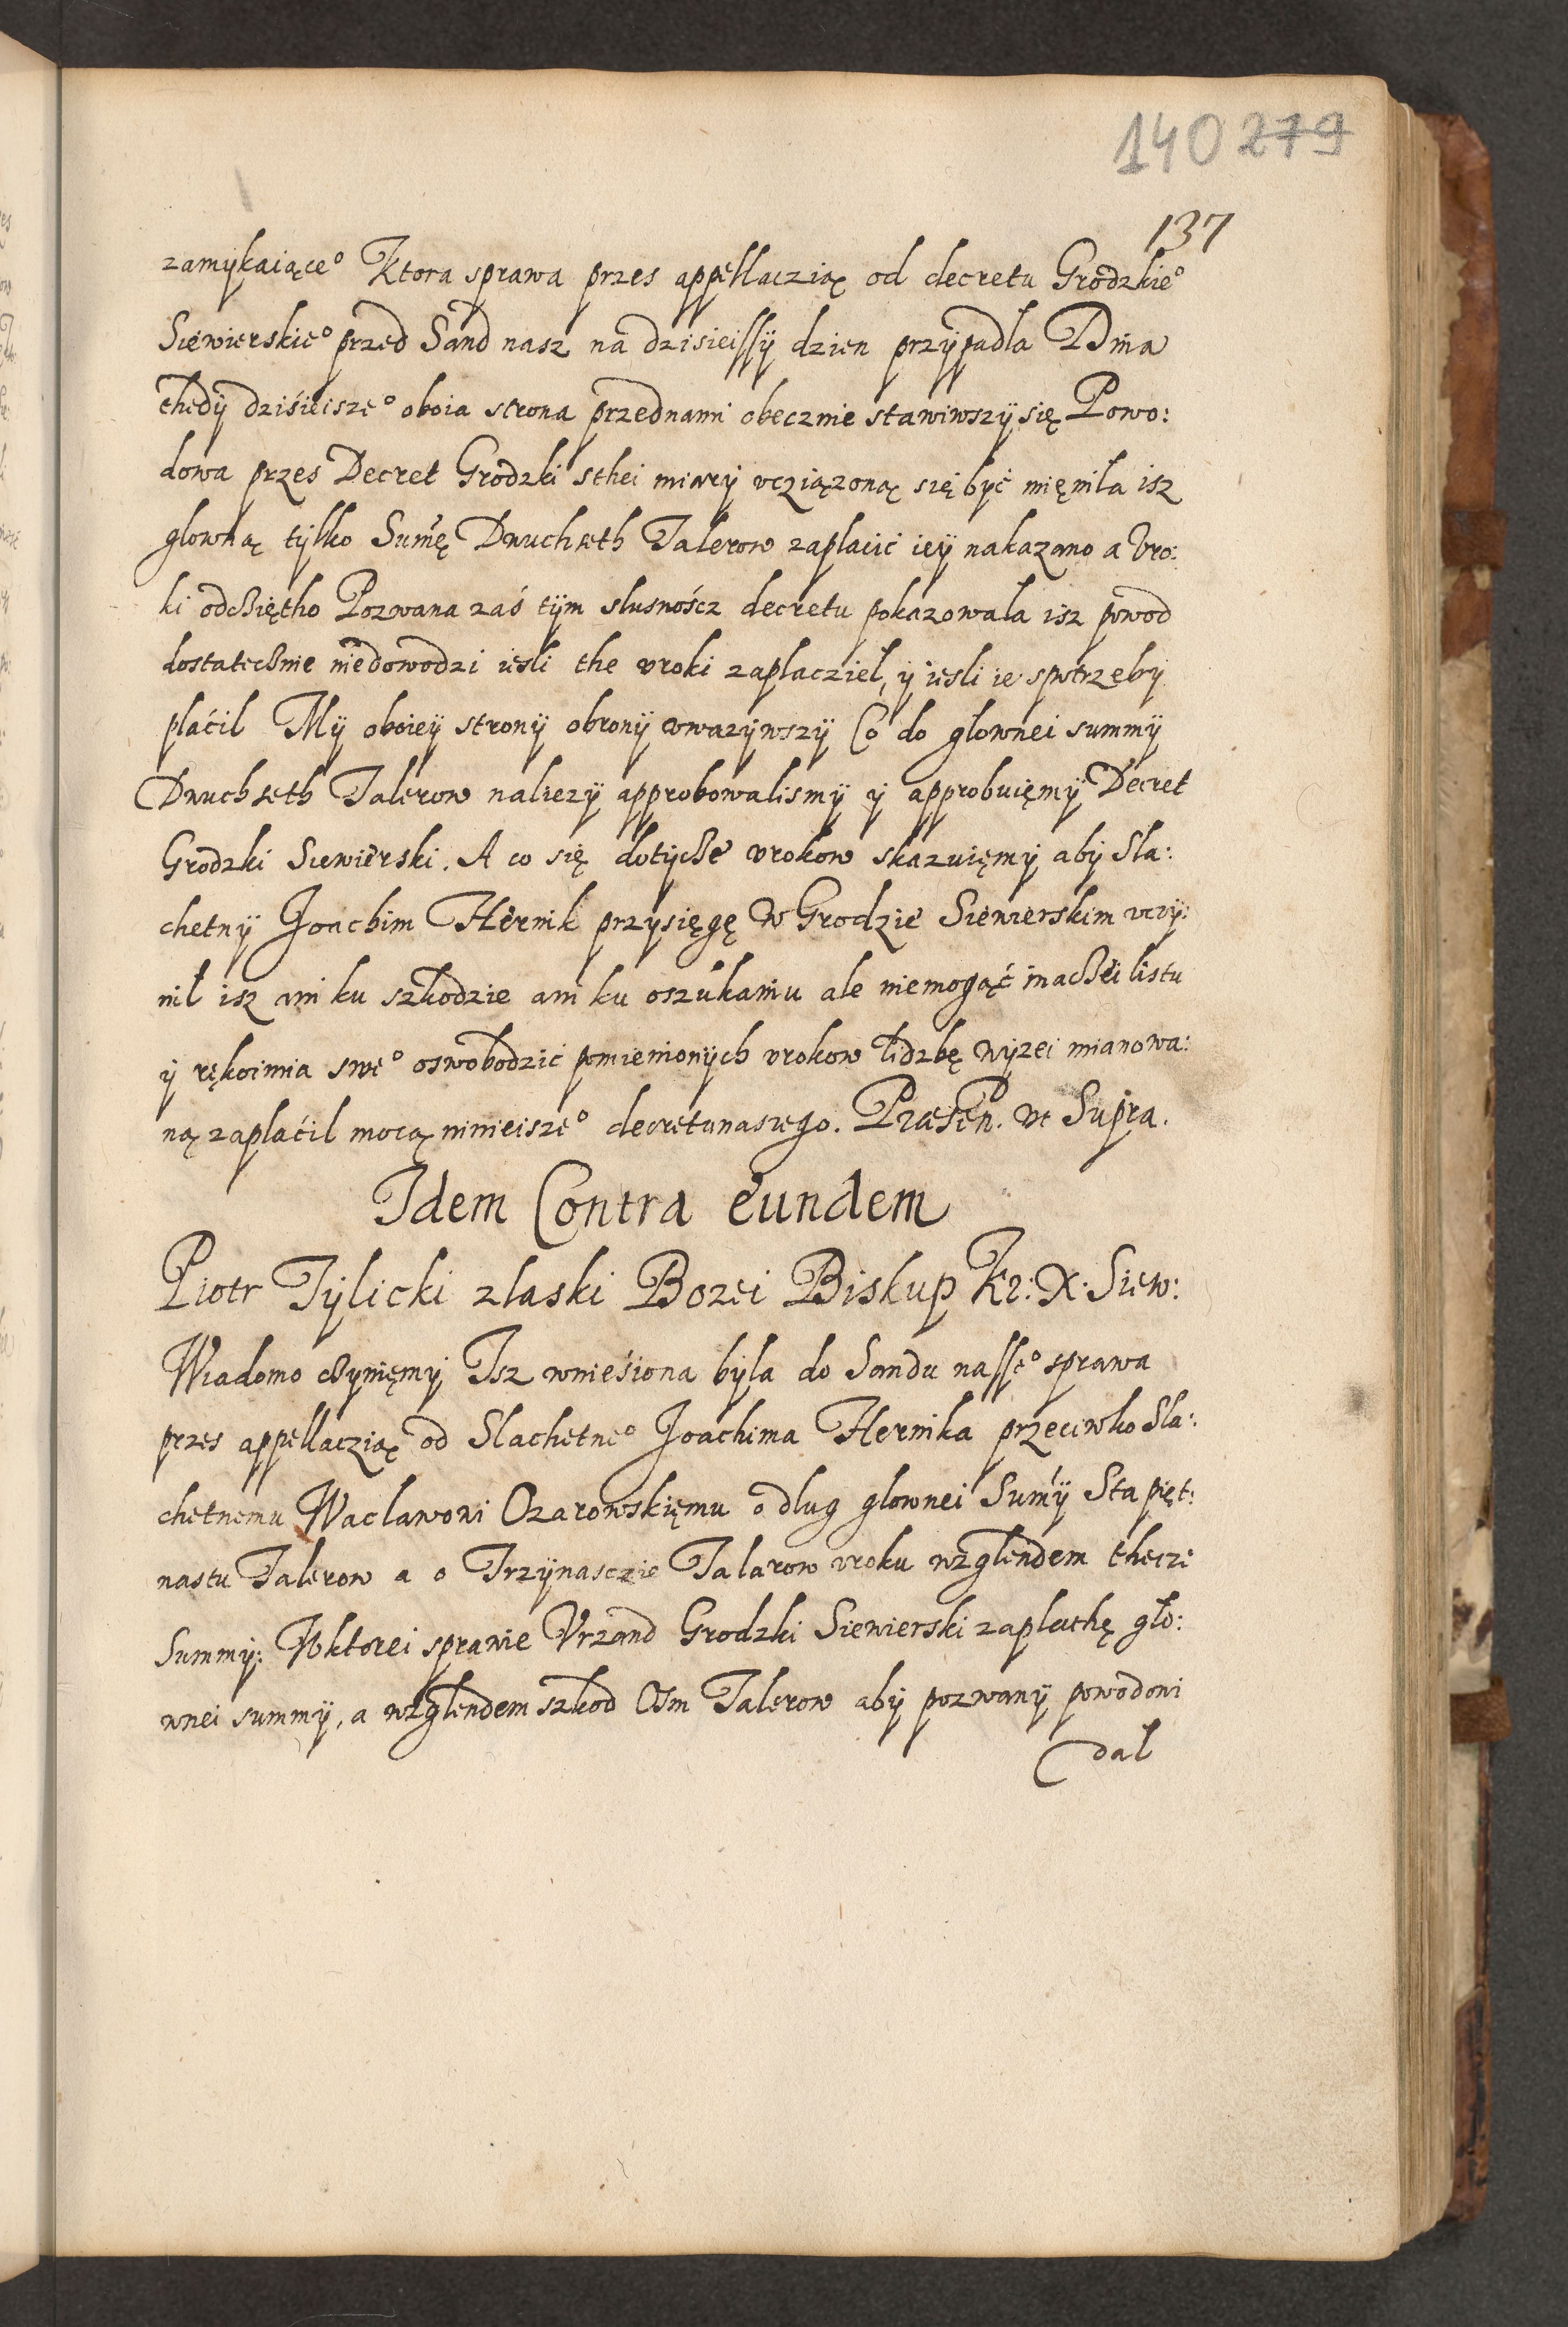 140 279
137
zamykaiące° Ktora sprawa przes appellaczią od decretu Grodzkie°
Siewierskie° przed Sand nasz na dzisieissÿ dzien przÿpadla Dnia
thedÿ dziśieisze° oboia strona przednami obecznie stawiwszÿ się Powo:
dowa przes Decret Grodzki sthei miarÿ vcziązoną się być mięnila isz
glowną tÿlko Sumę Dwuchseth Talerow zaplacić ieÿ nakazano a Vro:
ki odcziętho Pozwana zaś tÿm slusnoścz decretu pokazowala isz powod
dostatecznie niedowodzi iesli the vroki zaplacziel, ÿ iesli ie spotrzebÿ
plaćil Mÿ oboieÿ stronÿ obronÿ vwazÿwszÿ Co do glownei summÿ
Dwuchseth Talerow naliezÿ approbowalismÿ ÿ approbuięmÿ Decret
Grodzki Siewierski. A co się dotÿcze vrokow skazuięmÿ abÿ Sla:
chetnÿ Joachim Hernik przysięgę W Grodzie Siewierskim vczÿ:
nil isz ani ku szkodzie ani ku oszukaniu ale niemogąć inaczei listu
ÿ rękoimia swe° oswobodzić pomienionÿch vrokow lidzbę wÿzei mianowa:
ną zaplaćil mocą ninieisze° decretunaszego. Præsen. vt Supra.
Idem Contra eundem
Piotr Tÿlicki zlaski Bozei Biskup Kr: X: Siew:
Wiadomo czÿnięmÿ Isz wnieśiona bÿla do Sandu nasse° sprawa
przes appellaczią od Slachetne° Joachima Hernika przeciwko Sla:
chetnemu Waclawowi Ozarowskięmu o dlug glownei Sumÿ Sta pięt:
nastu Talerow a o Trzÿnasczie Talarow vroku wzglendem theize
Summÿ: Wktorei sprawie Vrzand Grodzki Siewierski zaplathę glo:
wnei summÿ, a wzglendem szkod Osm Talerow abÿ pozwanÿ powodowi
dal